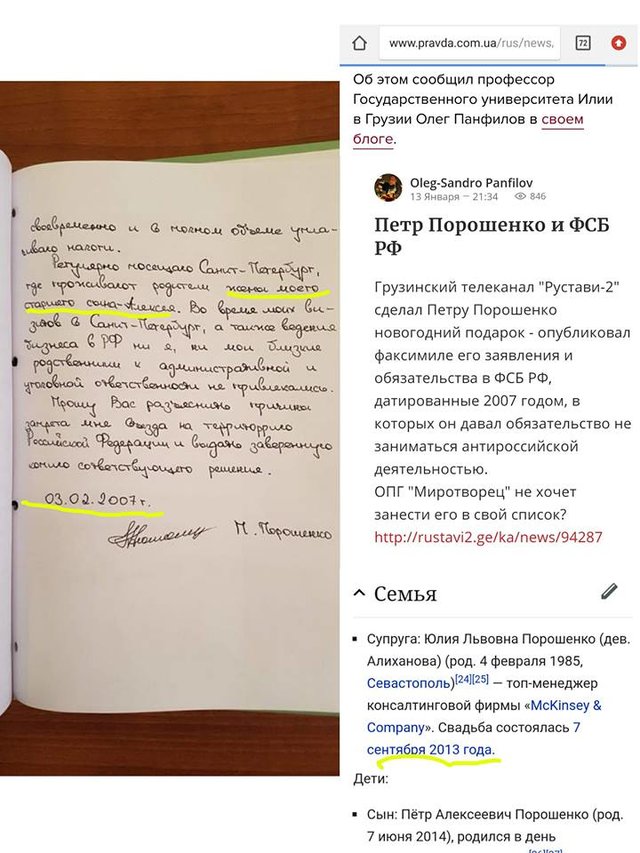 своевременно и в полном объеме упла-
чивало налоги.
Регулярно посещаю Санкт-Петербург,
где проживают родители жены моего
старшего сына-Алексея. Во время моих ви-
зитов в Санкт-Петербург, а также ведения
бизнеса в РФ ни я, ни мои близкие
родственники к административной и
уголовной ответственности не привлекались.
Прошу Вас разъяснить причины
запрета мне въезда на территорию
Российской Федерации и выдать заверенную
копию соответствующего решения.
03.02.2007г.
П. Порошенко
www.pravda.com.ua/rus/news,
72
Об этом сообщил профессор
Государственного университета Илии
в Грузии Олег Панфилов в своем
блоге.
Oleg-Sandro Panfilov
13 Января – 21:34 846
Петр Порошенко и ФСБ
РФ
Грузинский телеканал "Рустави-2"
сделал Петру Порошенко
новогодний подарок - опубликовал
факсимиле его заявления и
обязательства в ФСБ РФ,
датированные 2007 годом, в
которых он давал обязательство не
заниматься антироссийской
деятельностью.
ОПГ "Миротворец" не хочет
занести его в свой список?
http://rustavi2.ge/ka/news/94287
Семья
Супруга: Юлия Львовна Порошенко (дев.
Алиханова) (род. 4 февраля 1985,
Севастополь)[24][25] — топ-менеджер
консалтинговой фирмы «McKinsey &
Company». Свадьба состоялась 7
сентября 2013 года.
Дети:
Сын: Пётр Алексеевич Порошенко (род.
7 июня 2014), родился в день